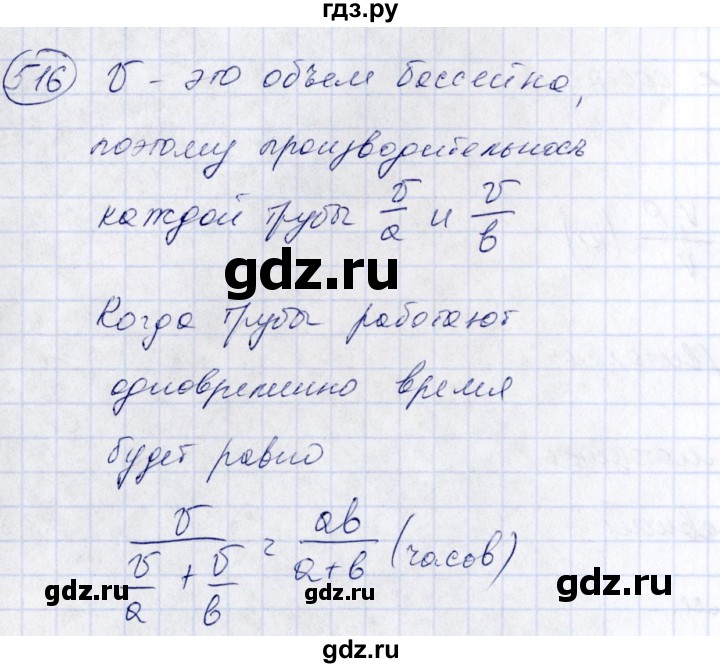 гдз.ру
516 V - это объем бассейна,
поэтому производительность
каждой трубы V/a и V/b
gdz.ru
Когда трубы работают
одновременно время
будет равно
V/(V/a + V/b) = ab/(a+b) (часов)
gdz.ru gdz.ru
gdz.ru
gdz.ru